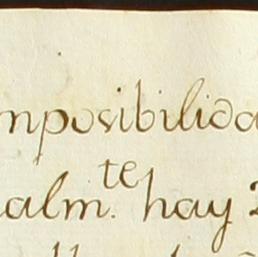 mposibilida
alm.te hay 2